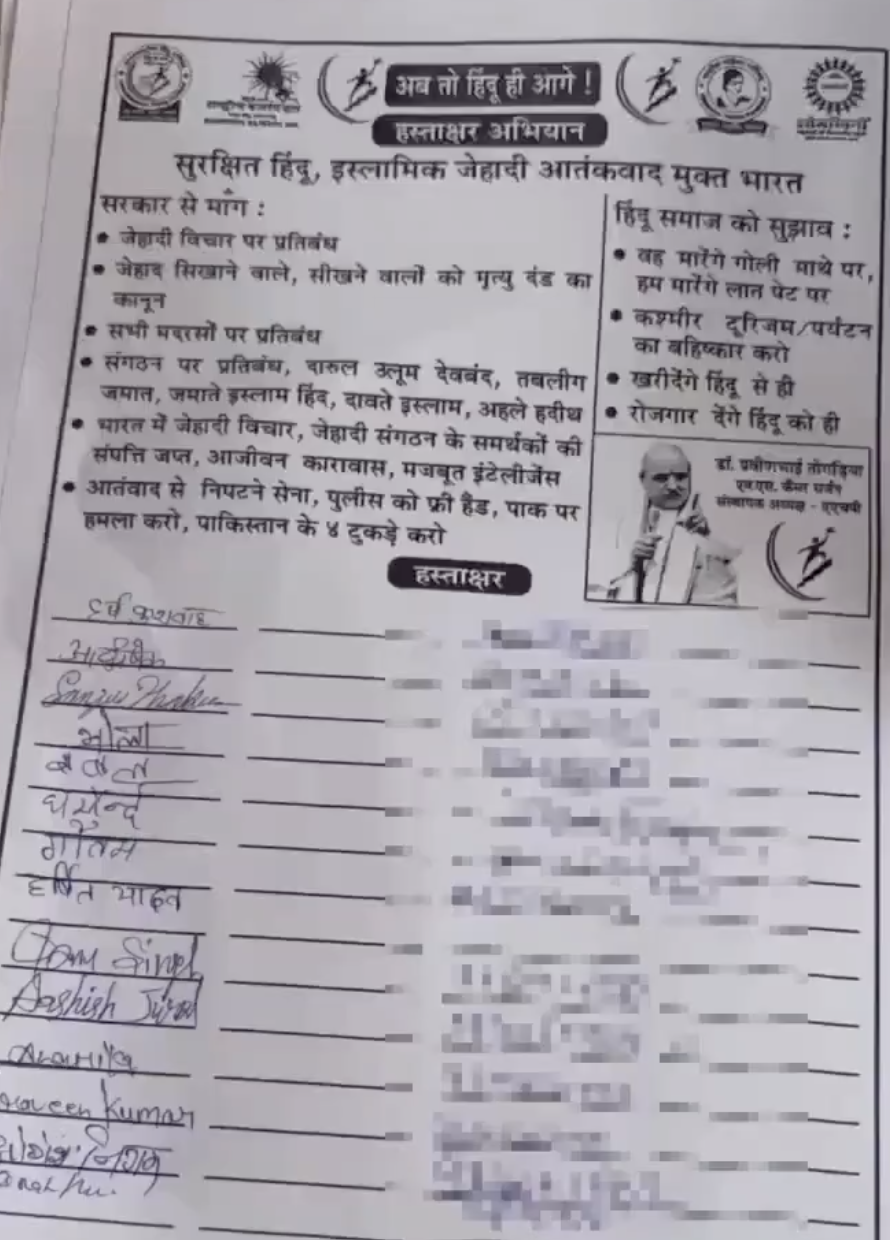 अब तो हिंदू ही आगे !
हस्ताक्षर अभियान
सुरक्षित हिंदू, इस्लामिक जेहादी आतंकवाद मुक्त भारत
सरकार से माँग :
• जेहादी विचार पर प्रतिबंध
• जेहाद सिखाने वाले, सीखने वालों को मृत्यु दंड का
कानून
• सभी मदरसों पर प्रतिबंध
• संगठन पर प्रतिबंध, दारुल उलूम देवबंद, तबलीग
जमात, जमाते इस्लाम हिंद, दावते इस्लाम, अहले हदीथ
• भारत में जेहादी विचार, जेहादी संगठन के समर्थकों की
संपत्ति जप्त, आजीवन कारावास, मजबूत इंटेलीजेंस
• आतंवाद से निपटने सेना, पुलीस को फ्री हैंड, पाक पर
हमला करो, पाकिस्तान के ४ टुकड़े करो
हिंदू समाज को सुझाव :
• वह मारेंगे गोली माथे पर,
हम मारेंगे लात पेट पर
• कश्मीर टूरिजम/पर्यटन
का बहिष्कार करो
• खरीदेंगे हिंदू से ही
• रोजगार देंगे हिंदू को ही
डॉ. प्रवीणभाई तोगड़िया
एम.एस. कैंसर सर्जन
संस्थापक अध्यक्ष - एएचपी
हस्ताक्षर
भोला
गौतम
हर्षित यादव
Aashish
Kumar